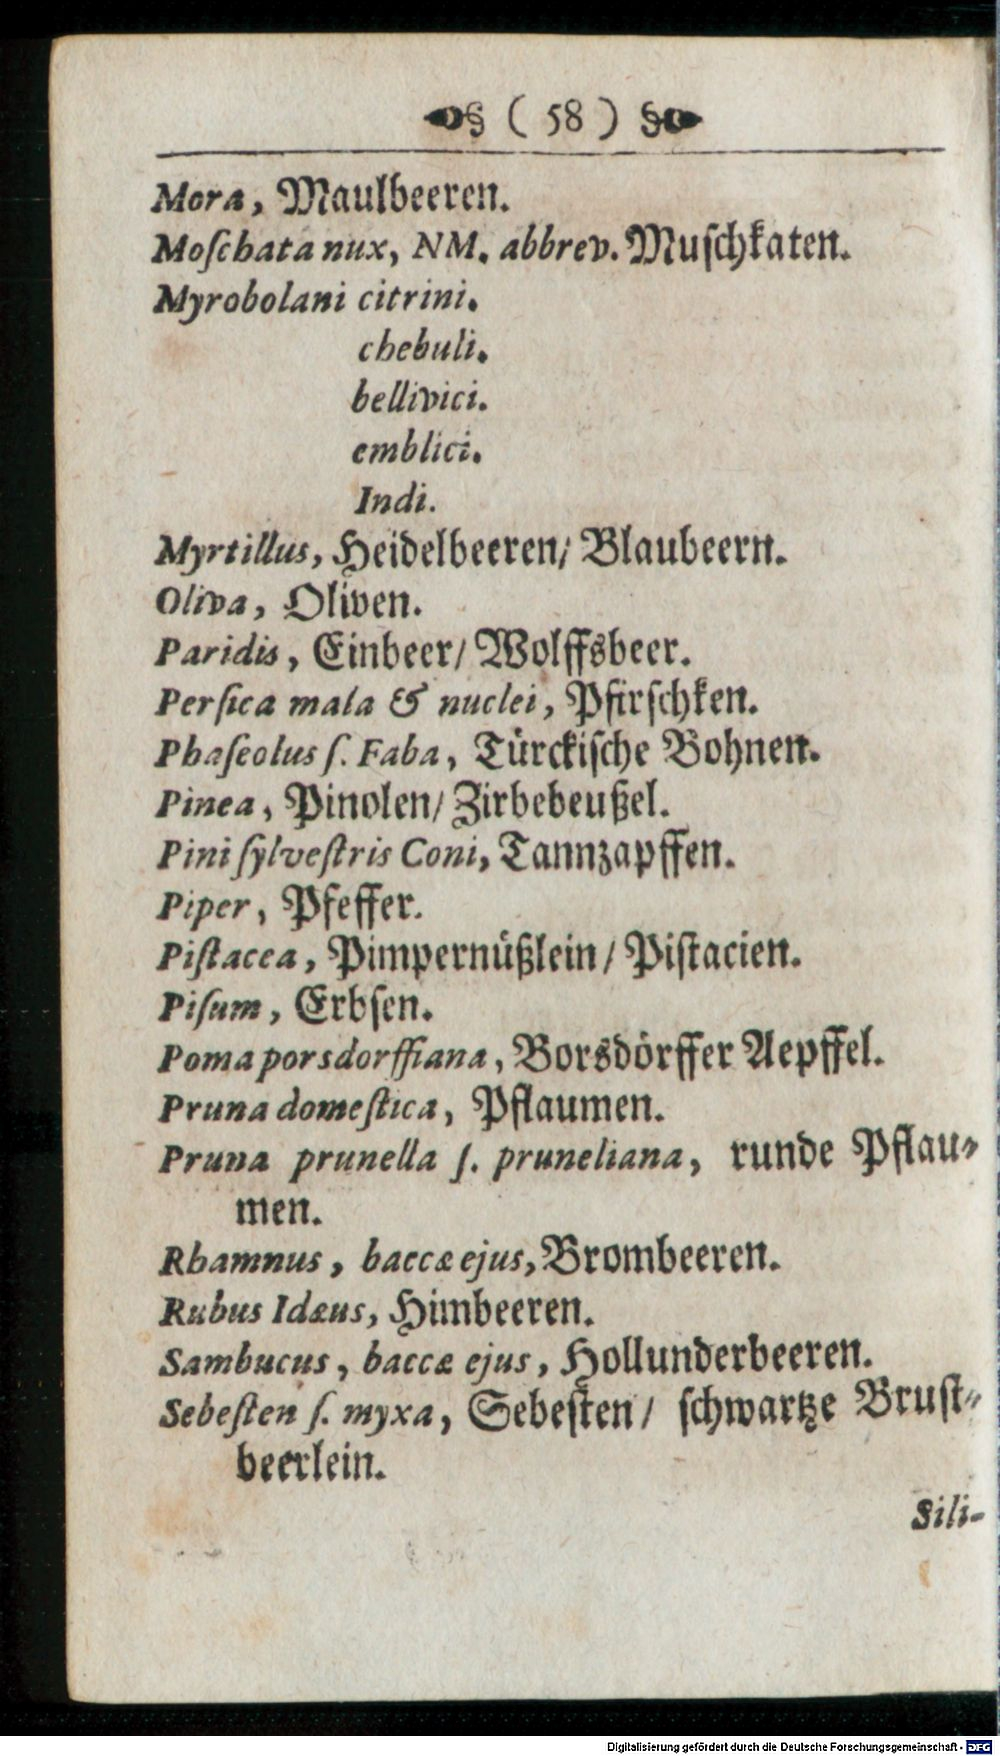 § ( 58 ) §
Mora, Maulbeeren.
Moſchata nux, NM. abbrev. Muſchkaten.
Myrobolani citrini.
chebuli.
bellivici.
emblici.
Indi.
Myrtillus, Heidelbeeren/ Blaubeern.
Oliva, Oliven.
Paridis, Einbeer/ Wolffsbeer.
Perſica mala & nuclei, Pfirſchken.
Phaſeolus ſ. Faba, Türckiſche Bohnen.
Pinea, Pinolen/ Zirbebeußel.
Pini ſylveſtris Coni, Tannzapffen.
Piper, Pfeffer.
Piſtacea, Pimpernüßlein/ Piſtacien.
Piſum, Erbſen.
Poma porsdorffiana, Borsdörffer Aepffel.
Pruna domeſtica, Pflaumen.
Pruna prunella ſ. pruneliana, runde Pflau-
men.
Rhamnus, baccæ ejus, Brombeeren.
Rubus Idæus, Himbeeren.
Sambucus, baccæ ejus, Hollunderbeeren.
Sebeſten ſ. myxa, Sebeſten/ ſchwartze Bruſt-
beerlein.
Sili-
Digitalisierung gefördert durch die Deutsche Forschungsgemeinschaft - DFG